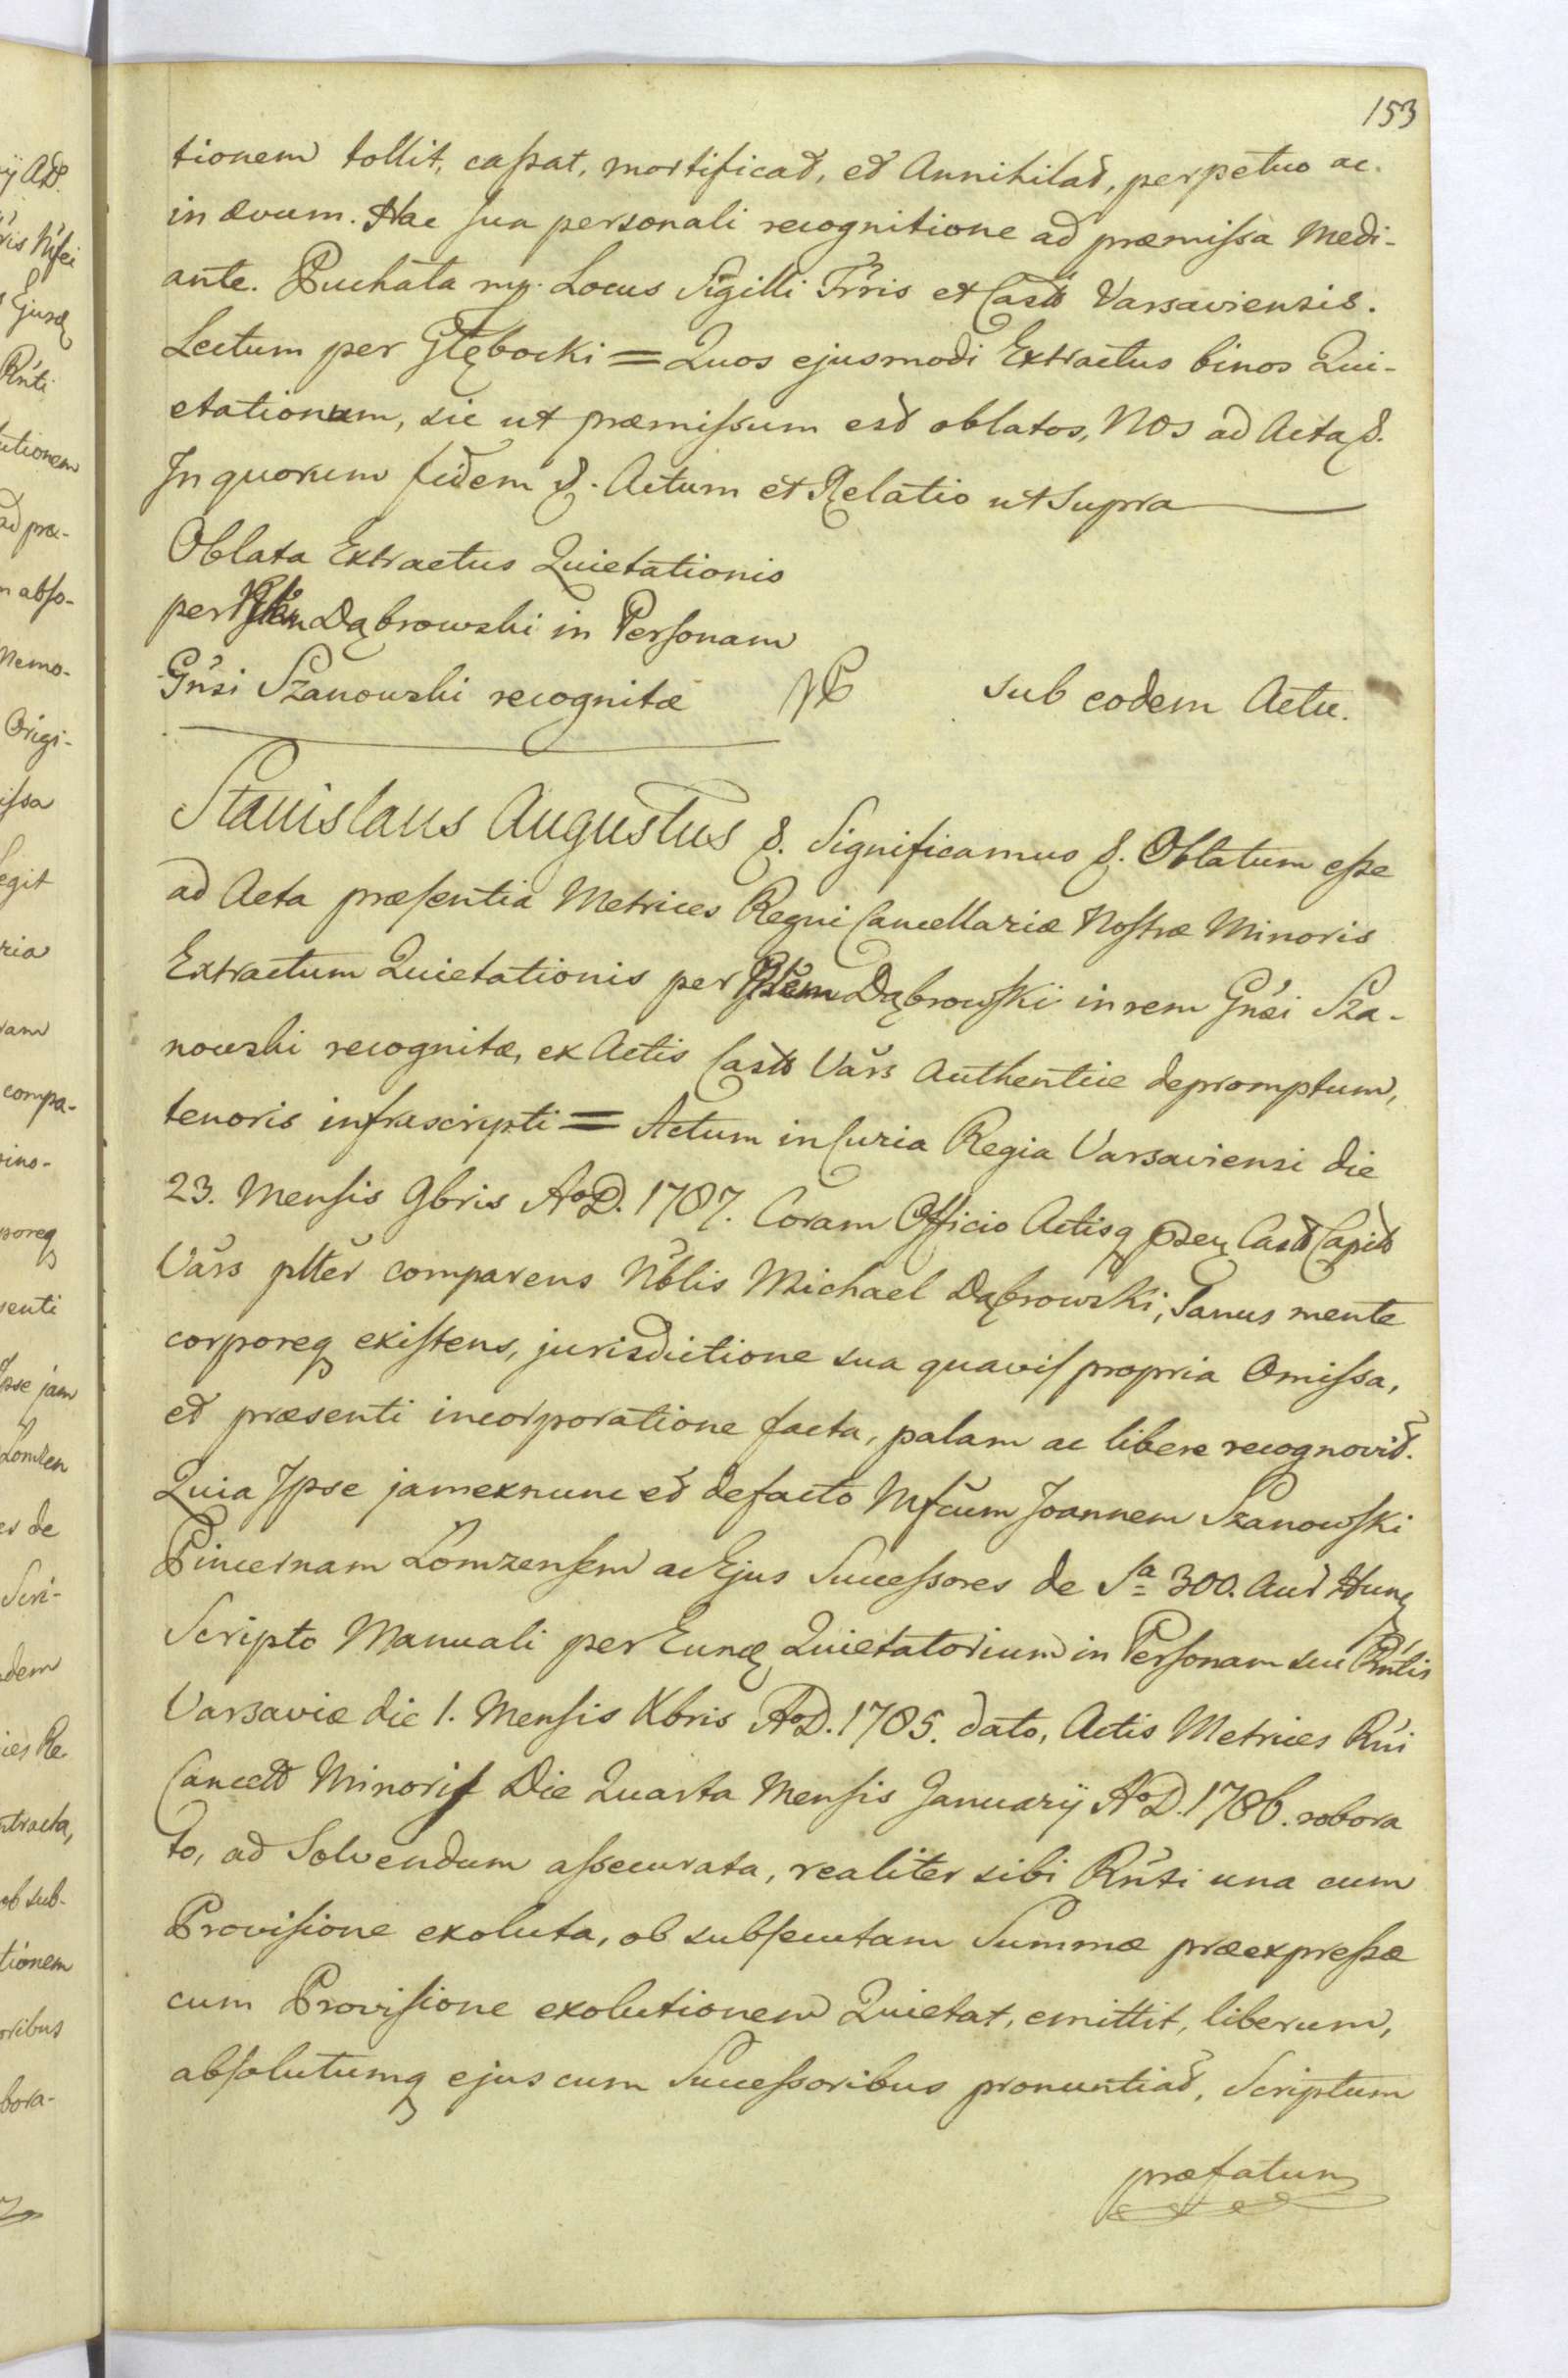 153
tionem tollit, cassat, mortificat, et Annihilat, perpetuo ac
in ævum. Hac sua personali recognitione ad præmissa Medi-
ante. Puchała mp. Locus Sigilli Trris et Castr Varsaviensis.
Lectum per Głębocki = Quos ejusmodi Extractus binos Qui-
etationum, sic ut præmissum est oblatos, Nos ad Acta &.
In quorum fidem &. Actum et Relatio ut Supra
Oblata Extractus Quietationis
per Dąbrowski in Personam
Gnsi Szanowski recognitæ
sub eodem Actu.
Stanislaus Augustus &. Significamus &. Oblatum esse
ad Acta præsentia Metrices Regni Cancellariæ Nostræ Minoris
Extractum Quietationis per Dąbrowski in rem Gnsi Sza-
nowski recognitæ, ex Actis Castr Vars Authentice depromptum,
tenoris infrascripti = Actum in Curia Regia Varsaviensi die
23. Mensis 9bris AoD. 1787. Coram Officio Actisq Castr Capit
Vars plter comparens Nblis Michael Dąbrowski, Sanus mente
corporeq existens, jurisdictione sua quavis propria Omissa,
et præsenti incorporatione facta, palam ac libere recognovit.
Quia Ipse jam exnunc et defacto Mfcum Joannem Szanowski
Pincernam Łomzensem ac Ejus Successores de Sa 300. Aur Hung
Scripto Manuali per Eund Quietatorium in Personam sui Rntis
Varsaviæ die 1. Mensis Xbris AoD. 1785. dato, Actis Metrices Rni
Cancell Minoris Die Quarta Mensis Januarij AoD. 1786. robora
to, ad Solvendum assecurata, realiter sibi Rnti una cum
Provisione exoluta, ob subsecutam Summæ præexpressæ
cum Provisione exolutionem Quietat, emittit, liberum,
absolutumq ejus cum Successoribus pronuntiat, Scriptum
præfatum